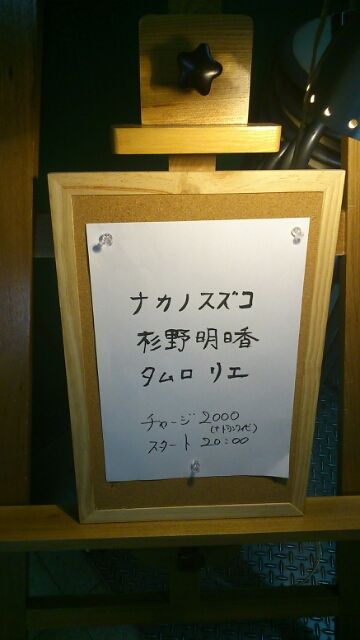 ナカノスズコ
杉野明日香
タムロ リエ
チャージ 2000
(+ドリンク代)
スタート 20:00